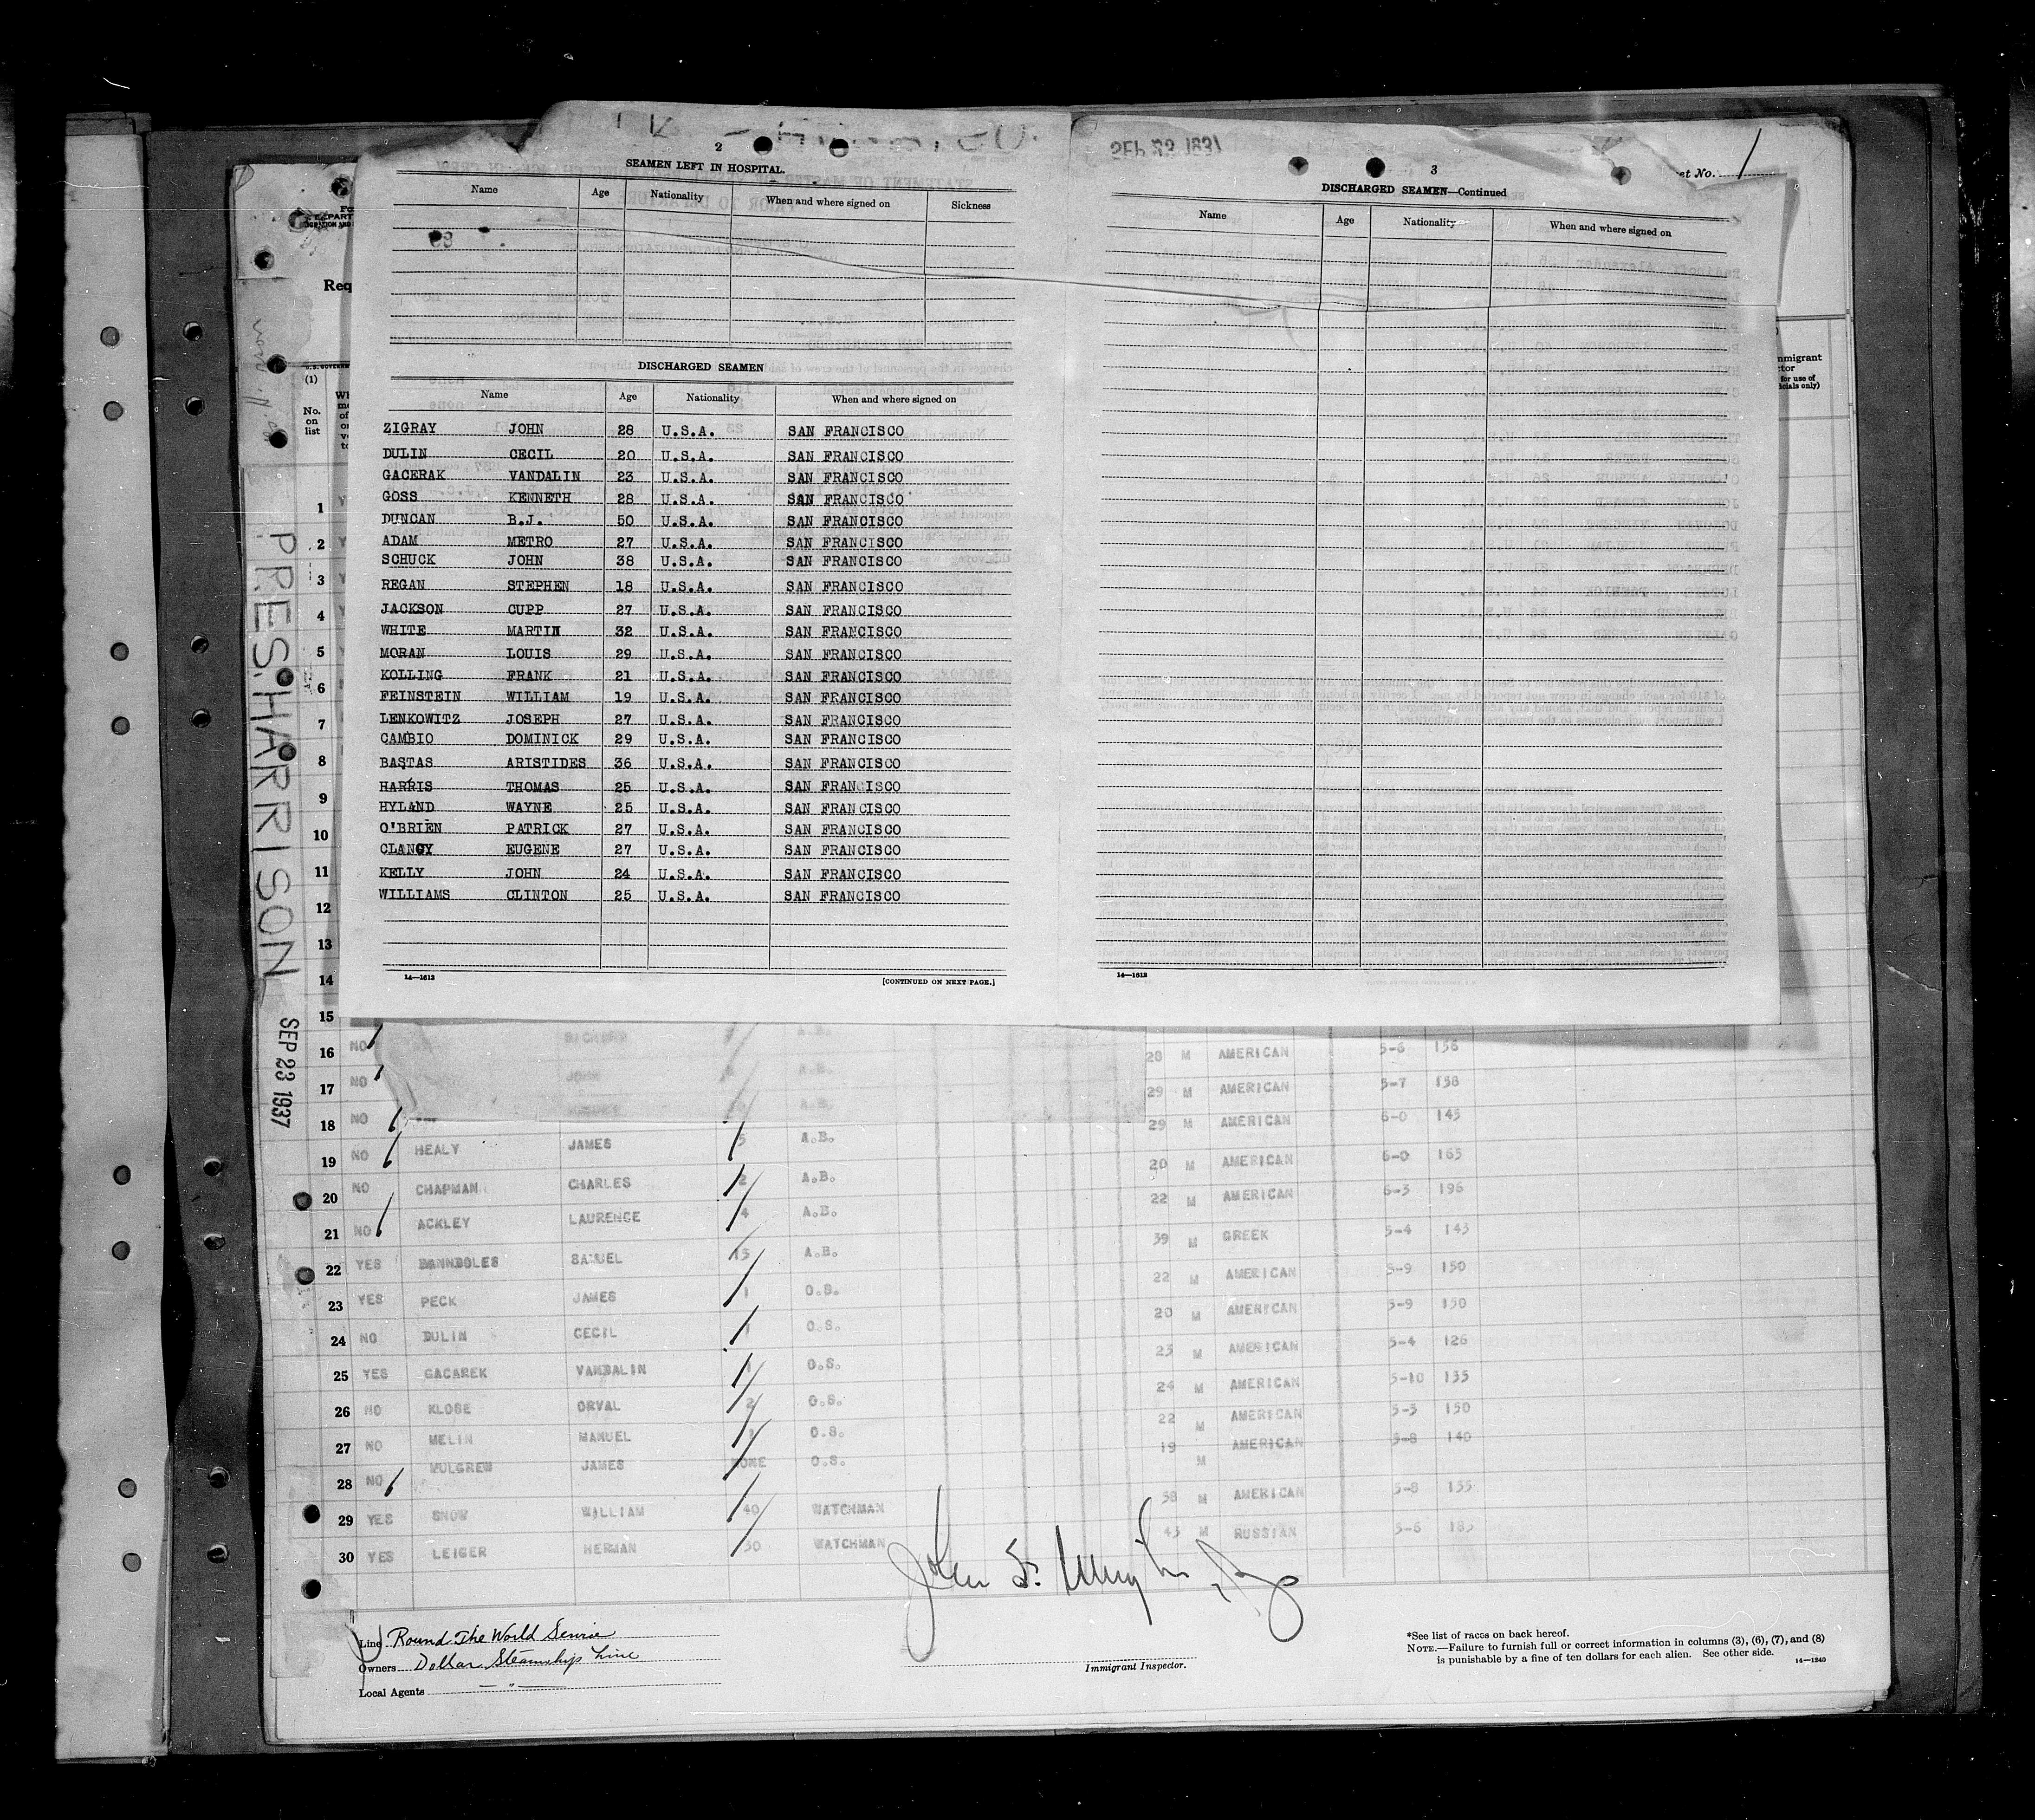 2
SEAMEN LEFT IN HOSPITAL.
Name Age Nationality When and where signed on Sickness
DISCHARGED SEAMEN
Name Age Nationality When and where signed on
ZIGRAY JOHN 28 U.S.A. SAN FRANCISCO
DULIN CECIL 20 U.S.A. SAN FRANCISCO
GACERAK VANDALIN 23 U.S.A. SAN FRANCISCO
GOSS KENNETH 28 U.S.A. SAN FRANCISCO
DUNCAN B.J. 50 U.S.A. SAN FRANCISCO
ADAM METRO 27 U.S.A. SAN FRANCISCO
SCHUCK JOHN 38 U.S.A. SAN FRANCISCO
REGAN STEPHEN 18 U.S.A. SAN FRANCISCO
JACKSON CUPP 27 U.S.A. SAN FRANCISCO
WHITE MARTIN 32 U.S.A. SAN FRANCISCO
MORAN LOUIS 29 U.S.A. SAN FRANCISCO
KOLLING FRANK 21 U.S.A. SAN FRANCISCO
FEINSTEIN WILLIAM 19 U.S.A. SAN FRANCISCO
LENKOWITZ JOSEPH 27 U.S.A. SAN FRANCISCO
CAMBIO DOMINICK 29 U.S.A. SAN FRANCISCO
BASTAS ARISTIDES 36 U.S.A. SAN FRANCISCO
HARRIS THOMAS 25 U.S.A. SAN FRANCISCO
HYLAND WAYNE 25 U.S.A. SAN FRANCISCO
O'BRIEN PATRICK 27 U.S.A. SAN FRANCISCO
CLANCY EUGENE 27 U.S.A. SAN FRANCISCO
KELLY JOHN 24 U.S.A. SAN FRANCISCO
WILLIAMS CLINTON 25 U.S.A. SAN FRANCISCO
14—1613
[CONTINUED ON NEXT PAGE.]
3
DISCHARGED SEAMEN—Continued
Name Age Nationality When and where signed on
14—1613
No. 1
(1)
No. on list
1
2
3
4
5
6
7
8
9
10
11
12
13
14
15
PRES. HARRISON
SEP 23 1937
16 NO A.B. 28 M AMERICAN 5-6 156
17 NO JOHN A.B. 29 M AMERICAN 5-7 158
18 NO A.B. 29 M AMERICAN 6-0 145
19 NO HEALY JAMES 5 A.B. 20 M AMERICAN 6-0 165
20 NO CHAPMAN CHARLES 2 A.B. 22 M AMERICAN 6-3 196
21 NO ACKLEY LAURENCE 4 A.B. 39 M GREEK 5-4 143
22 YES SAMUEL 15 A.B. 22 M AMERICAN 5-9 150
23 YES PECK JAMES 1 O.S. 20 M AMERICAN 5-9 150
24 NO DULIN CECIL 1 O.S. 23 M AMERICAN 5-4 126
25 YES GACAREK VANDALIN 1 O.S. 24 M AMERICAN 5-10 135
26 NO KLOSE ORVAL 2 O.S. 22 M AMERICAN 5-5 150
27 NO MELIN MANUEL 1 O.S. 19 M AMERICAN 5-8 140
28 NO MULGREW JAMES NONE O.S. 58 M AMERICAN 5-8 155
29 YES SNOW WILLIAM 40 WATCHMAN 43 M RUSSIAN 5-6 185
30 YES LEIGER HERMAN 30 WATCHMAN
Line Round The World Service
Owners Dollar Steamship Line
Local Agents — " —
Immigrant Inspector.
*See list of races on back hereof.
NOTE.—Failure to furnish full or correct information in columns (3), (6), (7), and (8)
is punishable by a fine of ten dollars for each alien. See other side.
14—1240